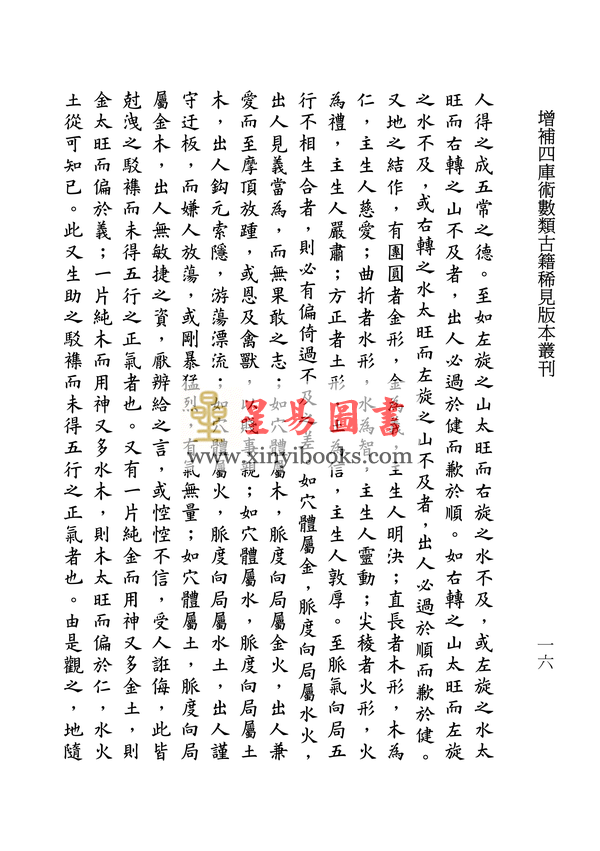 增補四庫術數類古籍稀見版本叢刊
一六
人得之成五常之德。至如左旋之山太旺而右旋之水不及，或左旋之水太
旺而右轉之山不及者，出人必過於健而歉於順。如右轉之山太旺而左旋
之水不及，或右轉之水太旺而左旋之山不及者，出人必過於順而歉於健。
又地之結作，有團圓者金形，金為義，主生人明決；直長者木形，木為
仁，主生人慈愛；曲折者水形，水為智，主生人靈動；尖稜者火形，火
為禮，主生人嚴肅；方正者土形，土為信，主生人敦厚。至脈氣向局五
行不相生合者，則必有偏倚過不及之差。如穴體屬金，脈度向局屬水火，
出人見義當為，而無果敢之志；如穴體屬木，脈度向局屬金火，出人兼
愛而至摩頂放踵，或恩及禽獸，以事親；如穴體屬水，脈度向局屬土
木，出人鈎元索隱，游蕩漂流；如穴體屬火，脈度向局屬水土，出人謹
守迂板，而嫌人放蕩，或剛暴猛烈，有氣無量；如穴體屬土，脈度向局
屬金木，出人無敏捷之資，厭辨給之言，或悾悾不信，受人誑侮，此皆
尅洩之駁襍而未得五行之正氣者也。又有一片純金而用神又多金土，則
金太旺而偏於義；一片純木而用神又多水木，則木太旺而偏於仁，水火
土從可知已。此又生助之駁襍而未得五行之正氣者也。由是觀之，地隨
星易圖書
www.xinyibooks.com